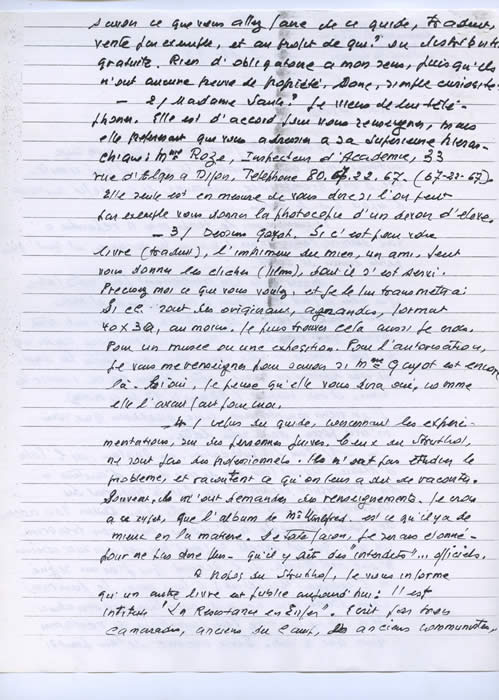 savoir ce que vous allez faire de ce guide, traduit,
vente par exemple, et au profit de qui? ou distribution
gratuite. Rien d'obligatoire a mon sens, puisqu'ils
n'ont aucune preuve de propiété, Donc, simple curiosité.
- 2/ Madame Je viens de leur télé-
phoner. Elle est d'accord pour vous renseigner, mais
elle préfèrerait que vous adressiez a sa supérieure hiérar-
chique: Mme Roze, Inspecteur d'Academie, 33
rue d'Elger a Dijon. Téléphone 80.67.22.67. (67-22-67).
Elle seule est en mesure de vous dire si l'on peut
par exemple vous donner la photocopie d'un devoir d'élève.
- 3/ Dessins Gayot. Si c'est pour votre
livre (traduit), l'imprimeur du mien, un ami, peut
vous donner les clichés (films), dont il s'est servi.
Précisez moi ce que vous voulez, et je le lui transmettrai
Si ce sont des originaux, agrandis, format
40x30, au moins. Je puis trouver cela aussi je crois.
Pour un musée ou une exposition. Pour l'autorisation,
je vais me renseigner pour savoir si Mme Gayot est encore
là. Si oui, je pense qu'elle vous dira oui, comme
elle l'avait fait pour moi.
- 4/ refus du guide, concernant les expéri-
mentations, sur des personnes juives. Ceux du Struthof,
ne sont pas des professionnels. Ils n'ont pas étudier le
problème, et racontent ce qu'on leur a dit de raconter.
Souvent, ils m'ont demandés des renseignements. Je crois
a ce sujet, que l'album de Mr est ce qu'il y a de
mieux en la matière. De toute façon, je serais étonné
pour ne pas dire plus - qu'il y ait des "interdits"... officiels.
A propos du Struthof, je vous informe
qu'un autre livre est publié aujourd'hui: Il est
intitulé "La Résistance en Enfer". Ecrit par trois
camarades, anciens du Camp, anciens communistes,